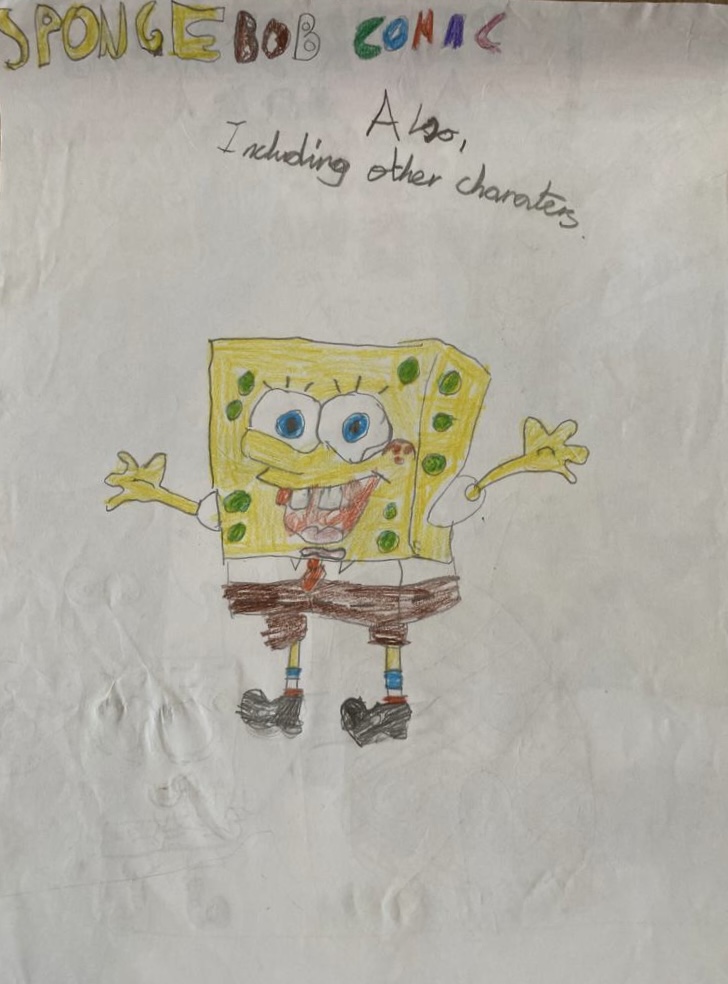 SPONGEBOB COMAC
Also,
Including other charaters.